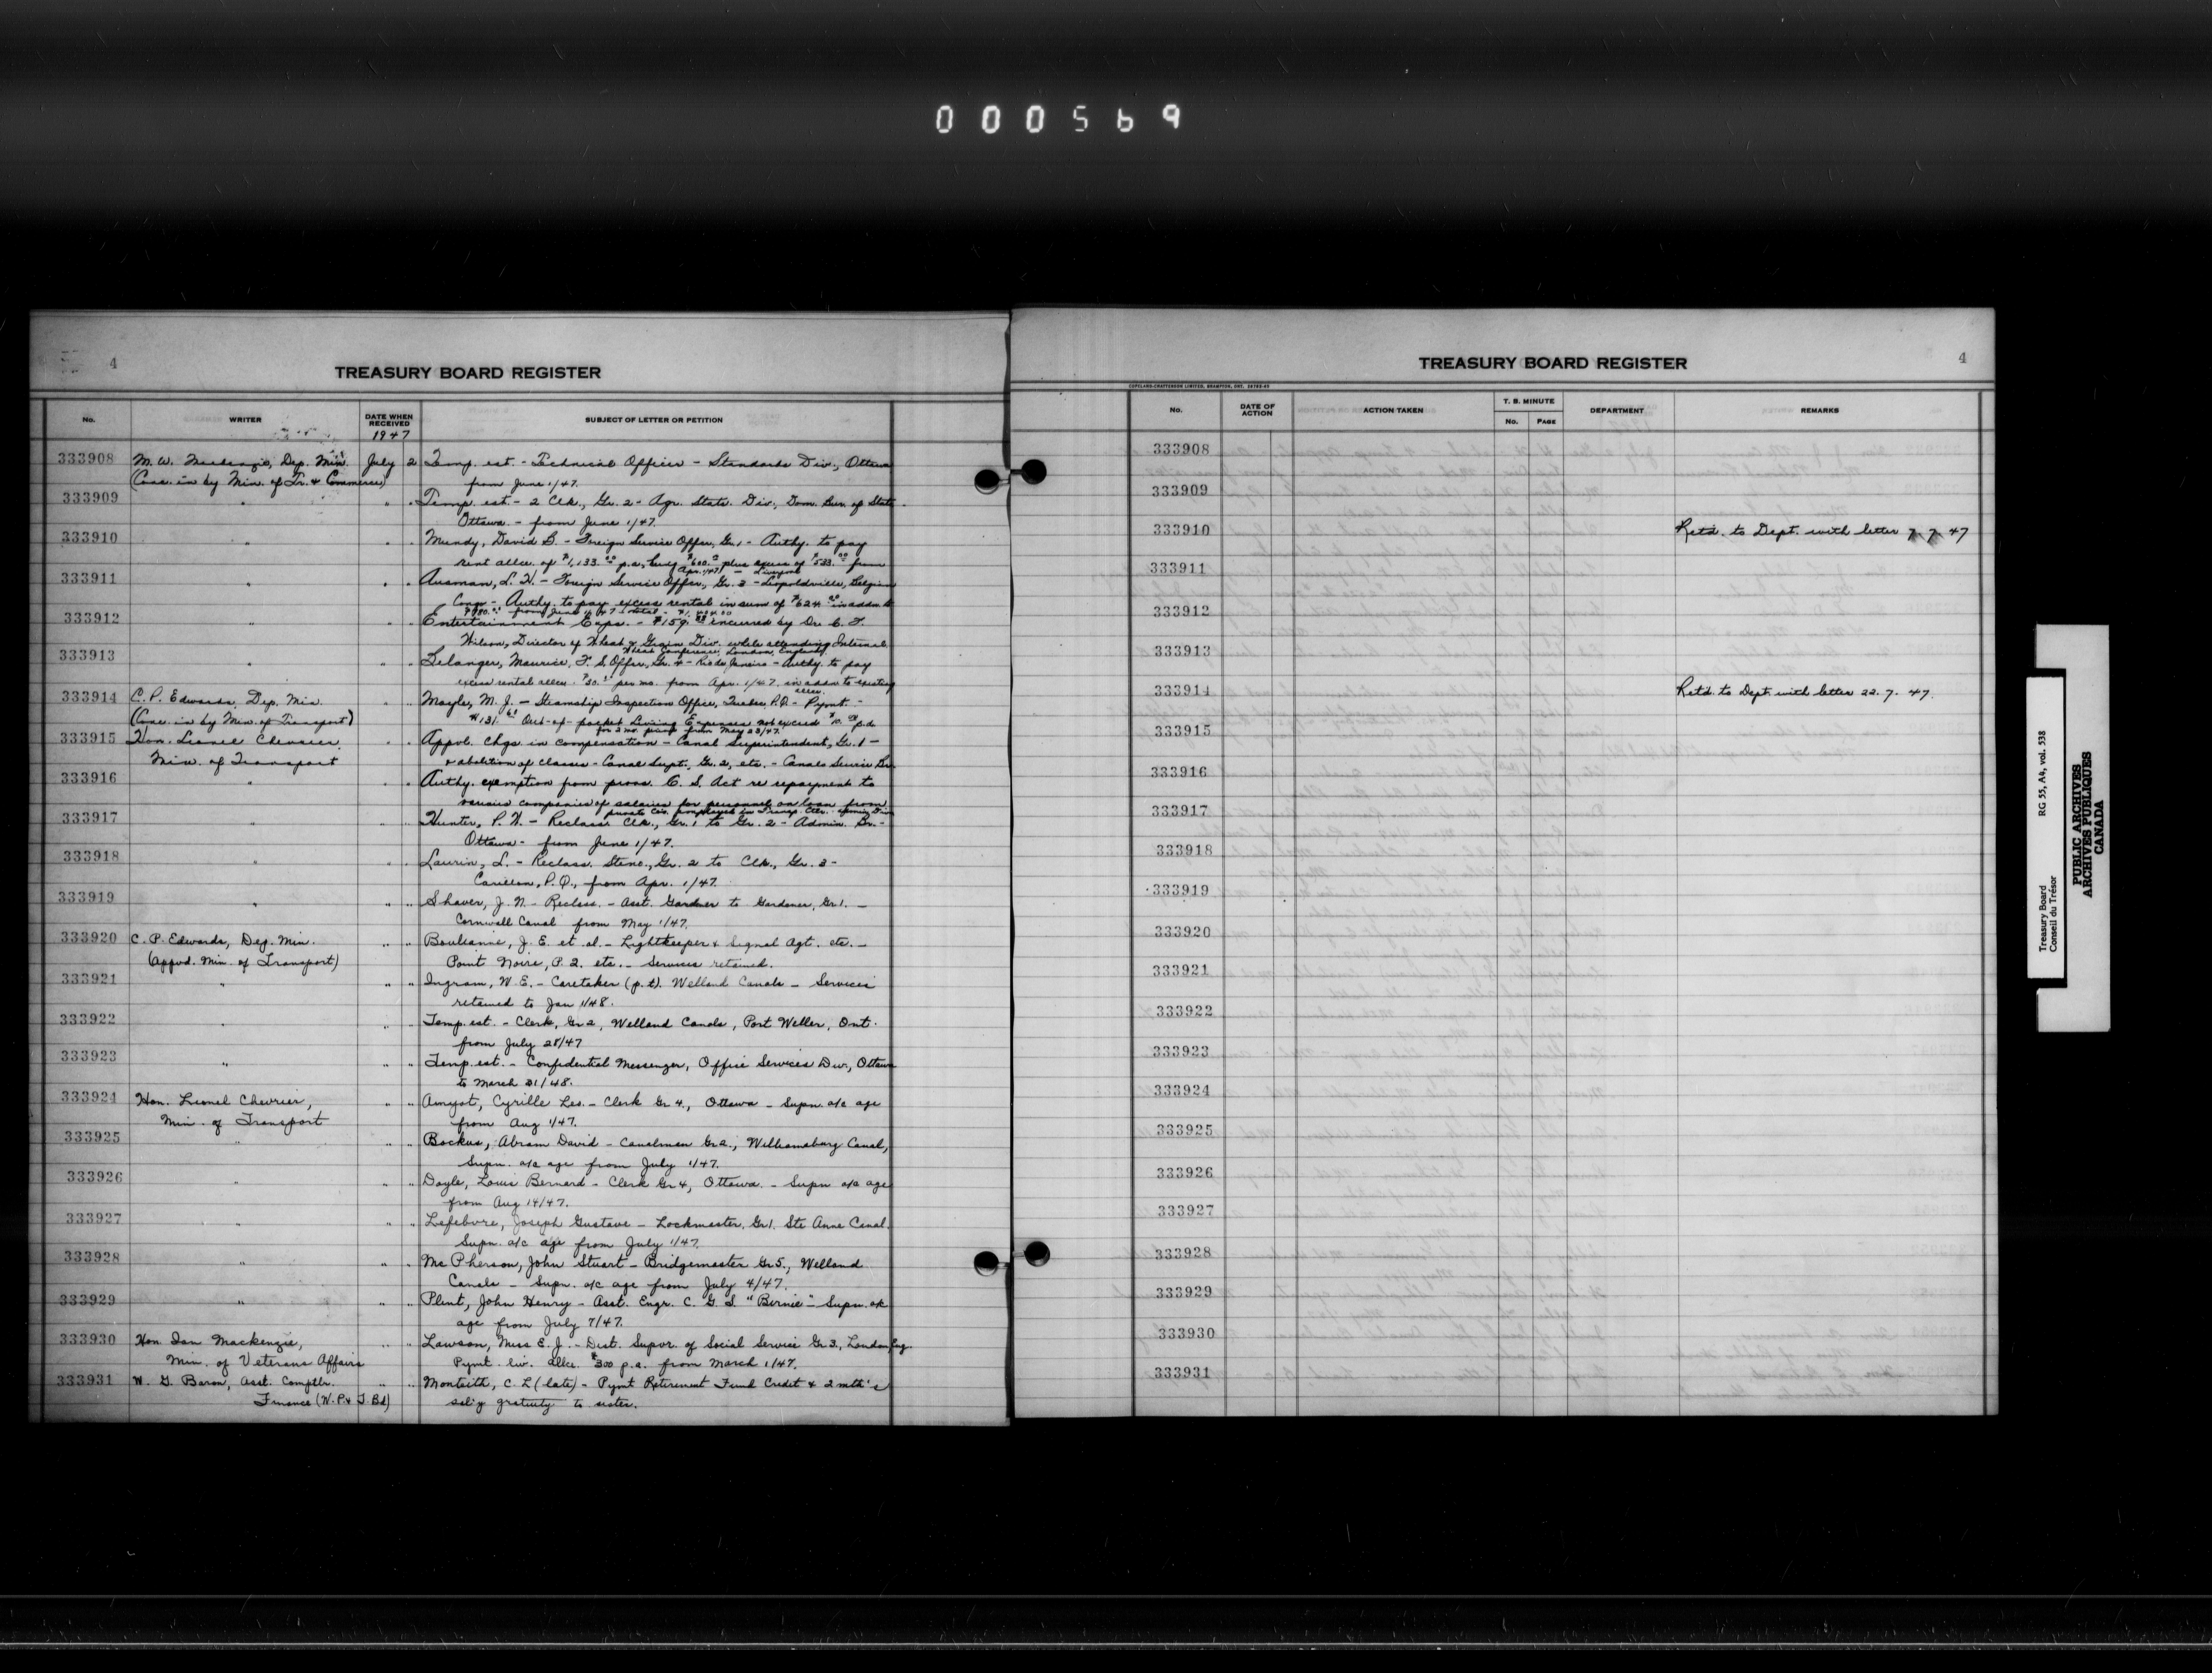 000569
4
TREASURY BOARD REGISTER
No. WRITER DATE WHEN RECEIVED SUBJECT OF LETTER OR PETITION
1947
333908 M. W. Mackenzie, Dep. Min. July 2 Temp. est. - Technical Officer - Standards Div., Ottawa
(Conc. in by Min. of Tr. & Commerce) from June 1/47.
333909 " " " Temp. est. - 2 Clk., Gr. 2 - Agr. Statc. Div., Dom. Bur. of Stat.
Ottawa. - from June 1/47.
333910 " " " Mundy, David B. - Foreign Service Offcr., Gr. 1 - Authy. to pay
rent allce. of $1,133.00 p.a., $600.00 plus excess of $533.00 from
Apr. 1/47 - Liverpool
333911 " " " Ausman, L. H. - Foreign Service Offcr., Gr. 3 - Leopoldville, Belgian
Congo - Authy. to pay excess rental in sum of $624.00 in addn. to
$780.00 from June 1/47
333912 " " " Entertainment Exps. - $159. incurred by Dr. C. F.
Wilson, Director of Wheat & Grain Div. while attending Internal.
Wheat Conference, London, England.
333913 " " " Belanger, Maurice, F. S. Offcr., Gr. 4 - Rio de Janeiro - Authy. to pay
excess rental allce. $30.00 per mo. from Apr. 1/47. in addn. to existing
allce.
333914 C. P. Edwards, Dep. Min. " " Mayle, M. J. - Steamship Inspection Office, Quebec, P.Q. - Pymt. -
(Conc. in by Min. of Transport) $131.61 Out-of-pocket Living Expenses not exceed $10.00 p.d.
for 3 mo. period from May 23/47.
333915 Hon. Lionel Chevrier, " " Appvl. chgs. in compensation - Canal Superintendent, Gr. 1 -
Min. of Transport & abolition of classes - Canal Supt., Gr. 2, etc. - Canals Service Br.
333916 " " " Authy. exemption from provs. C. S. Act re repayment to
various companies of salaries for personnel on loan from
private Cos.
333917 " " " Hunter, P. H. - Reclass. Clk., Gr. 1 to Gr. 2 - Admin. Br. -
Ottawa - from June 1/47.
333918 " " " Laurin, L. - Reclass. Steno., Gr. 2 to Clk., Gr. 3 -
Carillon, P.Q., from Apr. 1/47.
333919 " " " Shaver, J. N. - Reclass. - Asst. Gardner to Gardener, Gr 1. -
Cornwall Canal from May 1/47.
333920 C. P. Edwards, Dep. Min. " " Boulianne, J. E. et al. - Lightkeeper & Signal Agt. etc. -
(Appvd. Min. of Transport) Point Noire, P.Q. etc. - Services retained.
333921 " " " Ingram, W. E. - Caretaker (p.t). Welland Canals - Services
retained to Jan 1/48.
333922 " " " Temp. est. - Clerk, Gr 2, Welland Canals, Port Weller, Ont.
from July 28/47
333923 " " " Temp. est. - Confidential Messenger, Office Services Div., Ottawa
to March 31/48.
333924 Hon. Lionel Chevrier, " " Amyot, Cyrille Leo. - Clerk Gr 4., Ottawa - Supn. a/c age
Min. of Transport from Aug 1/47.
333925 " " " Bockus, Abram David - Canalman Gr 2., Williamsburg Canal,
Supn. a/c age from July 1/47.
333926 " " " Doyle, Louis Bernard - Clerk Gr 4, Ottawa. - Supn a/c age
from Aug 14/47.
333927 " " " Lefebvre, Joseph Gustave - Lockmaster, Gr 1. Ste Anne Canal.
Supn. a/c age from July 1/47.
333928 " " " McPherson, John Stuart - Bridgemaster Gr 5., Welland
Canals - Supn. a/c age from July 4/47.
333929 " " " Plint, John Henry - Asst. Engr. C. G. S. "Bernie" - Supn. a/c
age from July 7/47.
333930 Hon. Ian Mackenzie, " " Lawson, Miss E. J. - Dist. Supvr. of Social Service Gr 3., London, Eng.
Min. of Veterans Affairs Pymt. liv. allce. $300 p.a. from March 1/47.
333931 W. G. Baron, Asst. Comptlr. " " Monteith, C. L (late) - Pymt Retirement Fund Credit & 2 mth's
Finance (W.P. & T. Bd) sal'y gratuity to sister.
4
TREASURY BOARD REGISTER
COPELAND-CHATTERSON LIMITED, BRAMPTON, ONT.
No. DATE OF ACTION ACTION TAKEN T. B. MINUTE No. PAGE DEPARTMENT REMARKS
333908
333909
333910 Retd. to Dept. with letter 7 7 47
333911
333912
333913
333914 Retd. to Dept with letter 22. 7. 47.
333915
333916
333917
333918
333919
333920
333921
333922
333923
333924
333925
333926
333927
333928
333929
333930
333931
Treasury Board RG 55, A4, vol. 538
Conseil du Trésor
PUBLIC ARCHIVES
ARCHIVES PUBLIQUES
CANADA